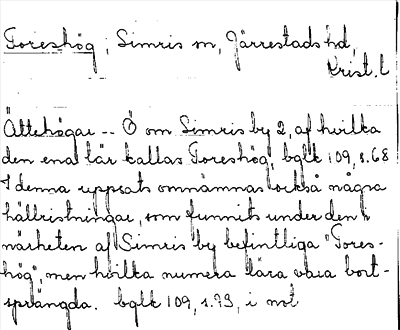 Toreshög; Simris sn, Järrestads hd,
Krist. l
Ättehögar -- Ö om Simris by 2, af hvilka
den ena lär kallas Toreshög, bglk 109, s. 68
I denna uppsats omnämnas också några
hällristningar, som funnits under den i
närheten af Simris by befintliga "Tores-
hög", men hvilka numera lära vara bort-
sprängda. bglk 109, s. 73, i not